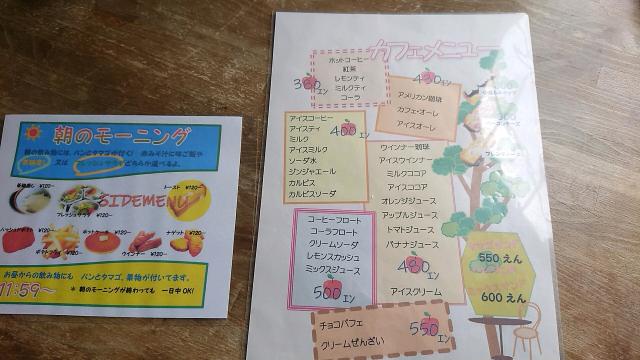 朝のモーニング
朝の飲み物には、パンとタマゴが付く！ 赤みそ汁に味ご飯や
又は
どちらか選べるよ。
¥120~
フレッシュサラダ ¥120~
SIDEMENU
トースト ¥120~
ハッシュポテト ¥120~
ポテトフライ ¥120~
ホットケーキ ¥120~
ウインナー ¥120~
ナゲット ¥120~
お昼からの飲み物にも パンとタマゴ、果物が付いてます。
11:59~ * 朝のモーニングが終わっても 一日中OK!
カフェメニュー
ホットコーヒー
紅茶
レモンティ
ミルクティ
コーラ
380エン
430エン
アメリカン珈琲
カフェ・オーレ
アイスオーレ
アイスコーヒー
アイスティ
ミルク
アイスミルク
ソーダ水
ジンジャエール
カルピス
カルピスソーダ
400エン
ウインナー珈琲
アイスウインナー
ミルクココア
アイスココア
オレンジジュース
アップルジュース
トマトジュース
バナナジュース
480エン
アイスクリーム
コーヒーフロート
コーラフロート
クリームソーダ
レモンスカッシュ
ミックスジュース
500エン
チョコパフェ
クリームぜんざい
550エン
550えん
600えん